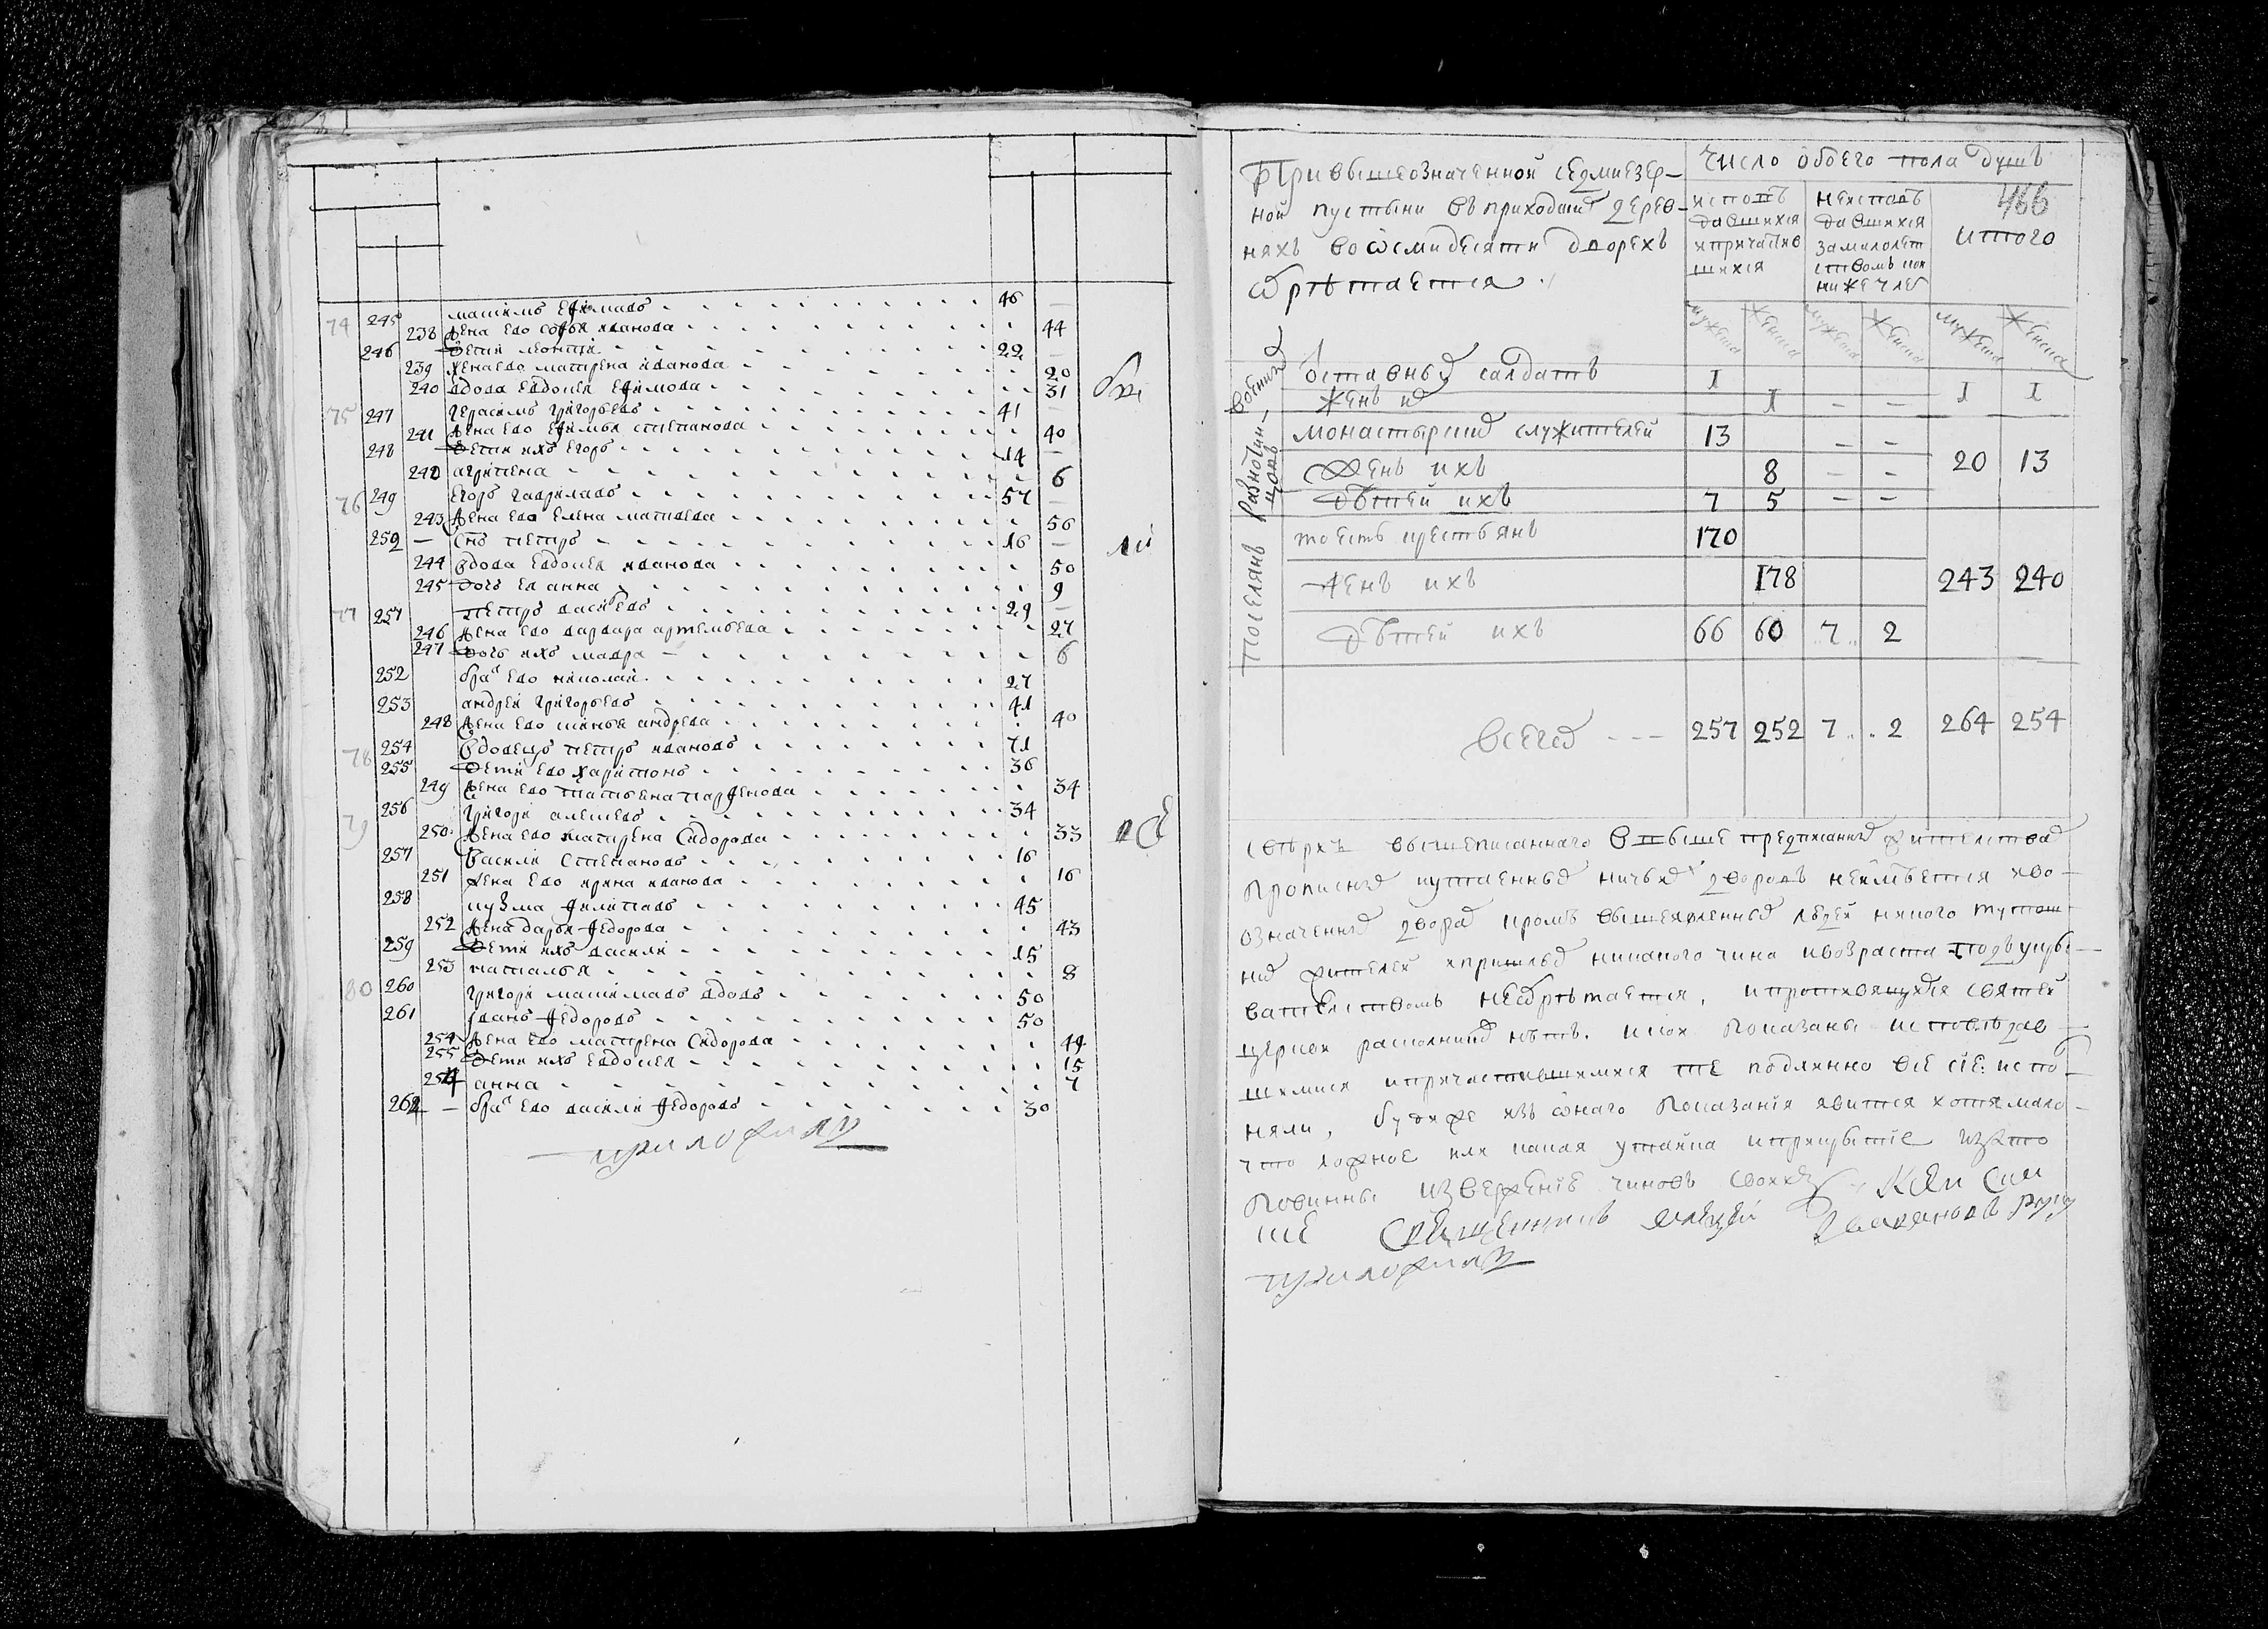 74 245 максимъ ефимавъ 46 —
238 жена ево софья иванова 44
246 дети леонтий 22 —
239 жена ево матрена иванова 20
240 вдова евдокея ефимова 31
75 247 герасимъ григорьевъ 41 —
241 жена ево ефимья степанова 40
248 дети ихъ егоръ 14 —
242 агрипена 6
76 249 егоръ гаврилавъ 57 —
243 жена ево елена матвеева 56
250 — снъ петръ 16 —
244 вдова евдокея иванова 50
245 дочь ея анна 9
77 251 петръ васильевъ 29 —
246 жена ево варвара артемьева 27
247 дочь ихъ мавра 6
252 братъ ево николай 27
253 андрей григорьевъ 41
248 жена ево андреева 40
78 254 вдовецъ петръ ивановъ 71
255 дети ево харитонъ 36
249 жена ево татьяна парфенова 34
79 256 григорей алексеевъ 34
250 жена ево матрена сидорова 33
257 василей степановъ 16
251 жена ево ирина иванова 16
258 кузма филипавъ 45
252 жена дарья федорова 43
259 дети ихъ василей 15
253 наталья 8
80 260 григорей максимавъ вдовъ 50
261 иванъ федоровъ 50
254 жена ево матрена сидорова 49
255 дети ихъ евдокея 15
256 анна 7
262 — братъ ево василей федоровъ 30
приложилъ
При вышеозначенной седмиезер-
ной пустыни въ приходскихъ дерев-
няхъ во осмидесяти дворехъ
обретается
число обоего пола душъ
466
исповѣ
давшихся
и причастив
шихся
неисповѣ
давшихся
за малолет
ствомъ
ниже
итого
мужеска женска мужеска женска мужеска женска
отставныхъ салдатъ 1
женъ их 1 — — 1 1
разночин-
цовъ
монастырских служителей 13 — —
женъ ихъ 8 — — 20 13
дѣтей ихъ 7 5 — —
поселянъ
то есть крестьянъ 170
женъ ихъ 178 243 240
дѣтей ихъ 66 60 7 2
всего 257 252 7 2 264 254
сверхъ вышеписаннаго в выше предписанных жителства
прописных и утаенных ничьих дворовъ не имѣется и во
означенных дворах кромѣ вышеявленных людей никого
жителей и пришлых никакого чина и возраста подъ укры
вателствомъ не обретается, и противящихся святей
церкви раскольников нѣтъ. и кои показаны исповедав
шимися и причастившимися те подлинно все сіе испо
няли, буде же изъ онаго показанія явится хотя мало
что ложное или какая утайка и прикрытіе и за то
повинны извержение чиновъ своихъ. к сеи
ске священникъ алексей ивановъ руку
приложилъ